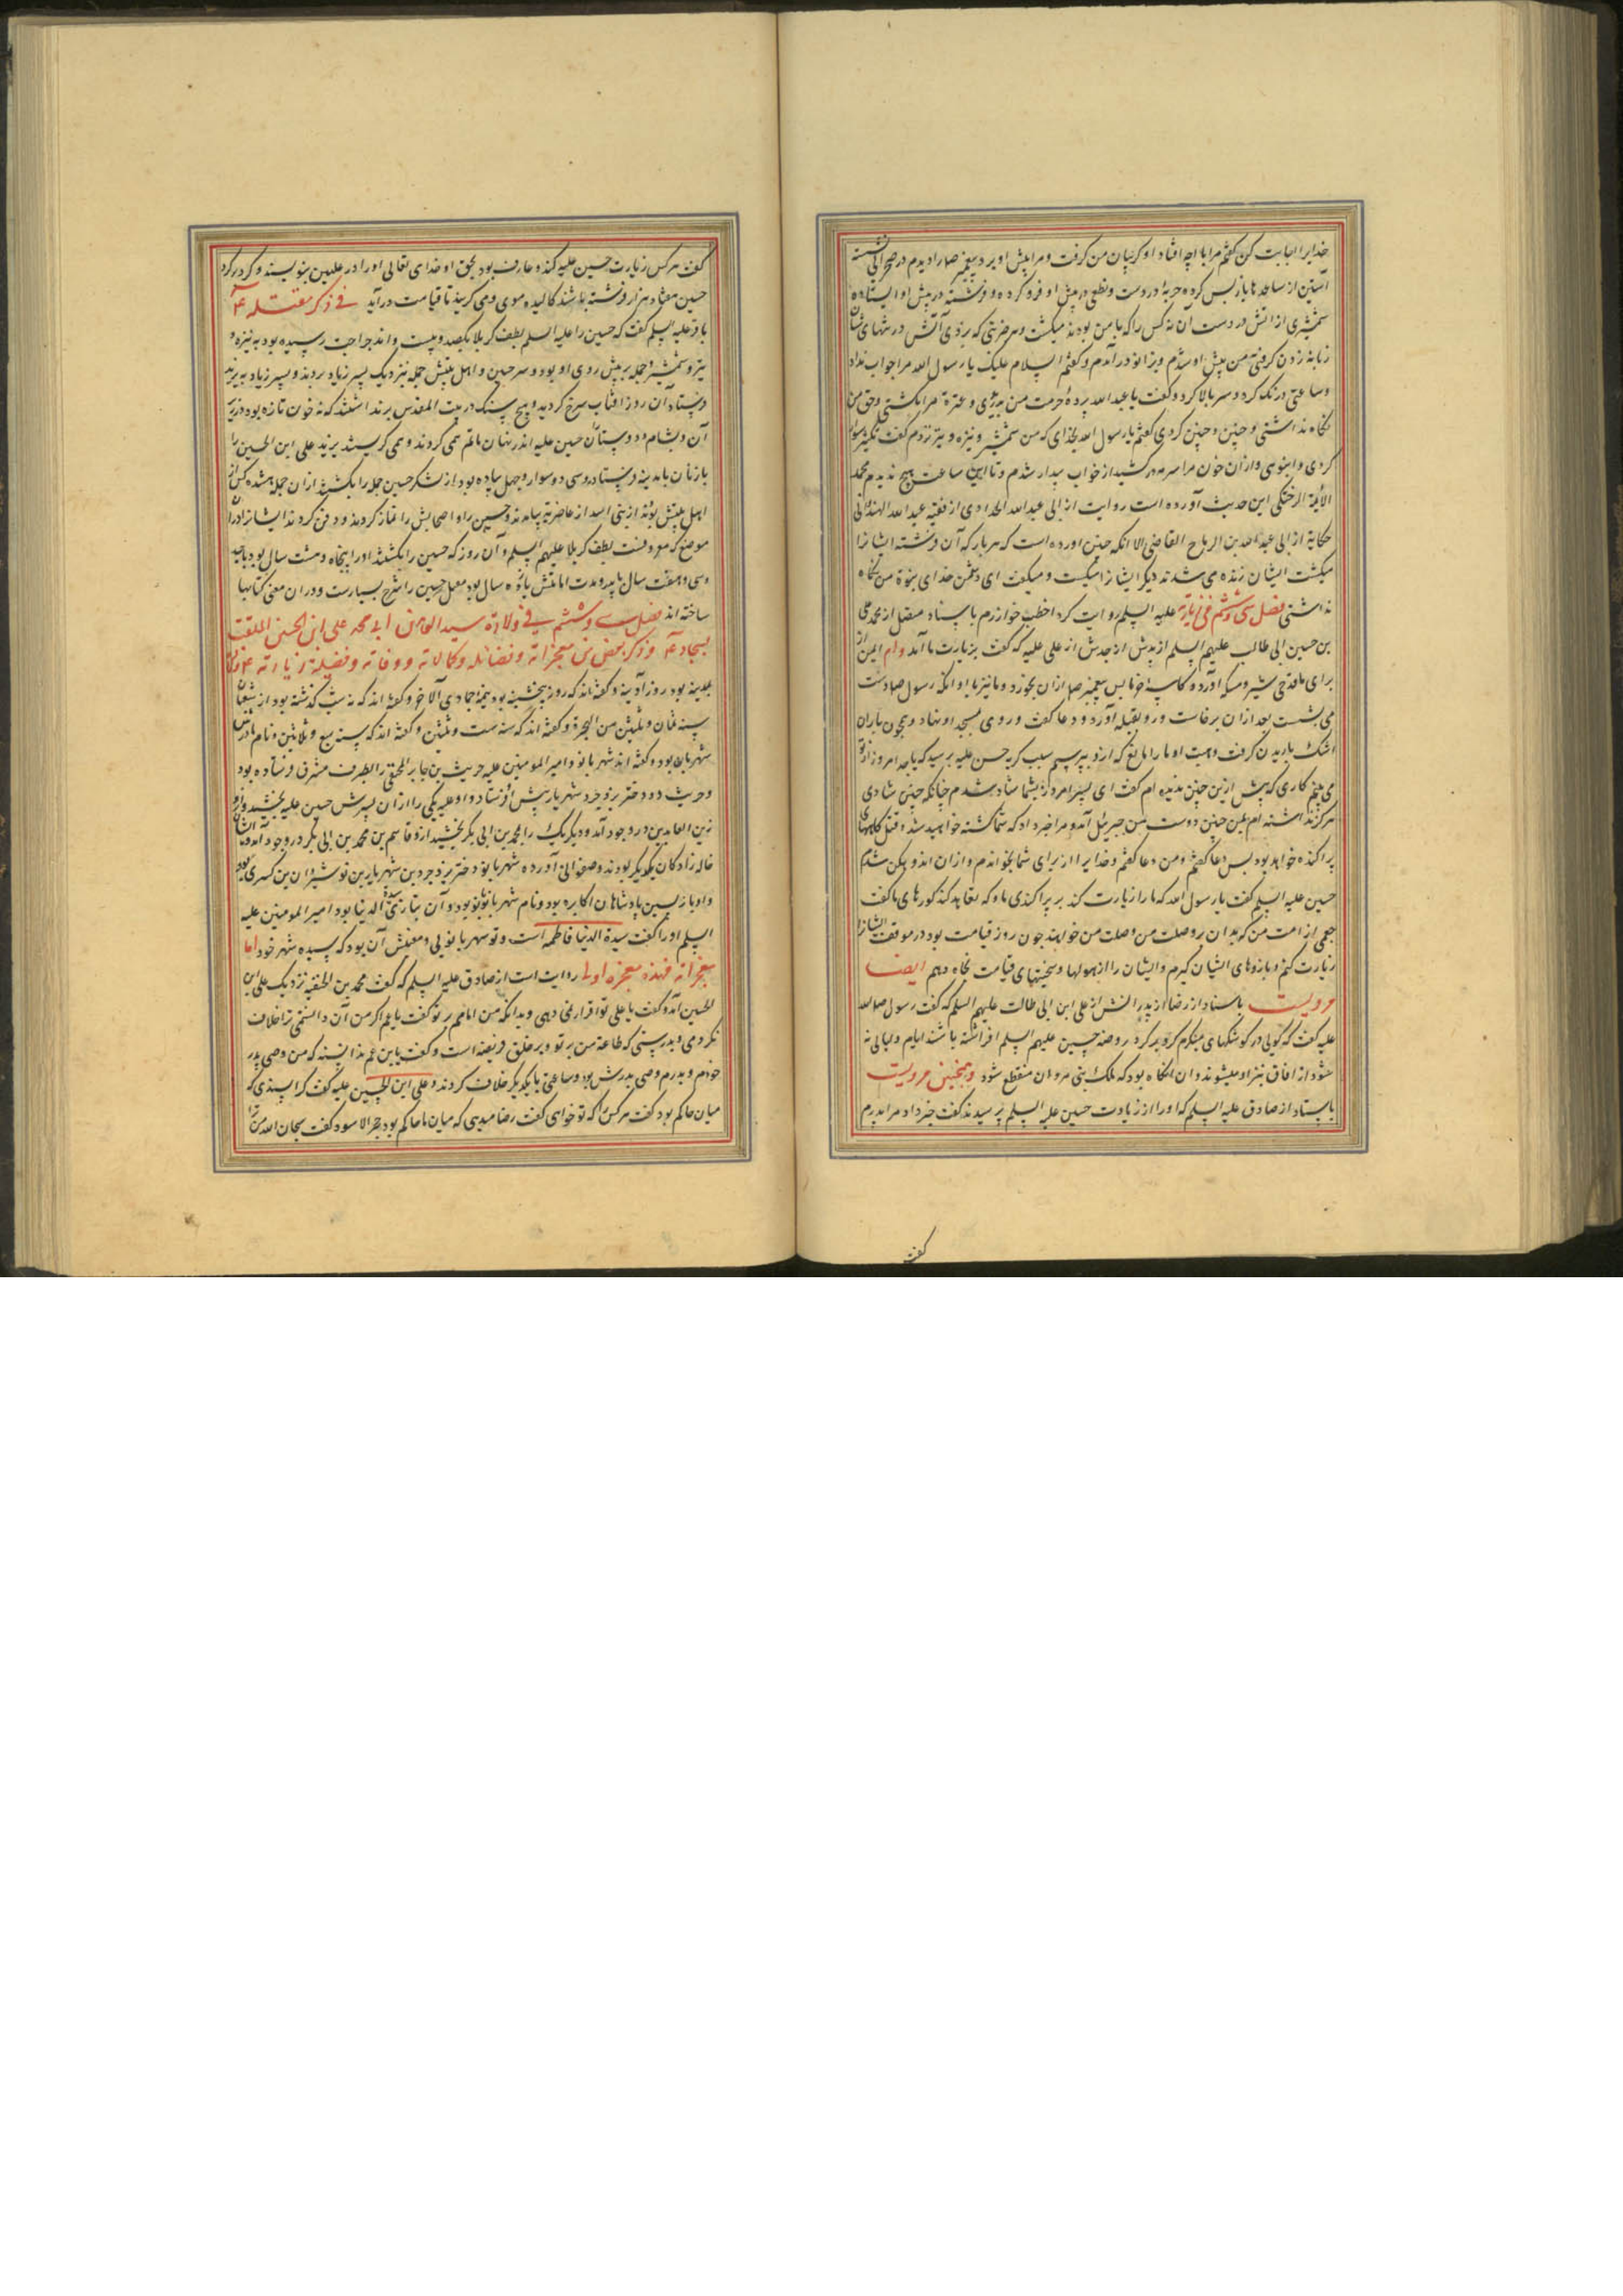 خدایرا اجابت کن گفتم مرا با او چه افتاد او گریبان من گرفت و مرا پیش او برد پیغمبر صلم را دیدم در صحرائی نشسته
آستین از ساعدها باز پس کرده حربۀ در دست و نطعی در پیش او فرو کرده و فرشتۀ در پیش او ایستاده
شمشیری از اتش در دست آن نه کس را که با من بودند میکشت و هر ضربتی که بزدی آتش در تنهای شان
زبانه زدن گرفتی من پیش او شدم و بزانو درآمدم و گفتم السلام علیک یا رسول الله مرا جواب نداد
و ساعتی درنگ کرد و سر بالا کرد و گفت یا عبد الله پردۀ حرمت من بدرّی و عترة مرا بکشتی و حق من
نگاه نداشتی و چنین و چنین کردی گفتم یا رسول الله بخدای که من شمشیر و نیزه و تیر نزدم گفت
کردی و انبوهی و ازان خون مرا سرمه در کشید از خواب بیدار شدم و تا این ساعت هیچ ندیدم مجد
الأیمة الرختکی این حدیث آورده است روایت از ابی عبد الله الحدادی از فقیه عبد الله الهندوانی
حکایة از ابی عبد الله بن الرباح القاضی الا انکه چنین اورده است که هر بار که آن فرشته ایشانرا
میکشت ایشان زنده می شدند دیگر ایشانرا میکشت و میگفت ای دشمن خدای بنوة من نگاه
نداشتی فصل سی و ششم فی زیارته علیه السلم روایت کرد اخطب خوارزم باسناد متصل از محمد علی
بن حسین ابی طالب علیهم السلم از پدرش از جدش از علی علیه که گفت بزیارت ما آمد و ام ایمن از
برای ما قدحی شیر و مسکه آورد و کاسۀ خرما پس پیغمبر صلم ازان بخورد و ما نیز با او انگه رسول صلم دست
می بشست بعد ازان برخاست و رو بقبله آورد و دعا گفت و روی بمسجد او نهاد و همچون باران
اشک باریدن گرفت و هیبت او ما را مانع که ازو بپرسیم سبب گریه حسین علیه برسید که یا جد امروز از تو
می بینم کاری که پیش ازین چنین ندیده ام گفت ای پسر امروز بشما شاد شدم چنانکه چنین شادی
هرگز نداشته ام بمن چنین دوست من جبرئیل آمد و مرا خبر داد که شما کشته خواهید شد و قتل گاههای
پراکنده خواهد بود بس دعا گفتم و من دعا گفتم و خدایرا از برای شما بخواندم و ازان اندوهگین شدم
حسین علیه السلم گفت یا رسول الله که ما را زیارت کند بر پراکندی ما و که تعاهد کند گورهای ما گفت
جمعی از امت من که بدان رو صلت من و صلت من خواهند چون روز قیامت بود در موقف ایشانرا
زیارت کنم و بازوهای ایشان گیرم و ایشان را از هولها و سختیهای قیامت نگاه دهم ایضا
مرویست باسناد از رضا از پدرانش از علی ابن ابی طالب علیهم السلم که گفت رسول صلی الله
علیه گفت که گویی در کوشکهای مینگرم کرد بر کرد روضه حسین علیهم السلم افراشته باشند ایام و لیالی نه
شود از افاق بنزد او میشوند و ان انگاه بود که ملک بنی مروان منقطع شود و همچنین مرویست
باسناد از صادق علیه السلم که اورا از زیارت حسین علیه السلم پرسیدند گفت خبر داد مرا پدرم
گفت
گفت هر کس زیارت حسین علیه کند و عارف بود بحق او خدای تعالی اورا در علیین بنویسند و گرد بر گرد
حسین هفتاد هزار فرشته باشند کالیده موی و می گریند تا قیامت درآید فی ذکر مقتله ع
باقر علیه السلم گفت که حسین را علیه السلم بطف کربلا بکصد و بیست و اند جراحت رسیده بود به نیزه و
تیر و شمشیر و جمله بر پیش روی او بود و سر حسین و اهل بیتش جمله نزدیک پسر زیاد بردند و پسر زیاد به یزید
فرستاد آن روز افتاب سرخ گردید و هیچ سنگ در بیت المقدس برنداشتند که نه خون تازه بود در زیر
آن و بشام دوستان حسین علیه اندر نهان ماتم همی کردند و همی گریستند یزید علی ابن الحسین را
با زنان بمدینه فرستاد و سی و دو سوار و چهل پیاده بود از لشکر حسین جمله را بکشتند ازان جمله هشده کس از
اهل بیتش بودند از بنی اسد از غاضریه بیامدند و حسین را و اصحابش را نماز کردند و دفن کردند ایشانرا در ان
موضع که معروفست بطف کربلا علیهم السلم و آن روز که حسین را بکشتند اورا پنجاه و هشت سال بود با جد
و سی و هفت سال با پدر و مدت امامتش یازده سال بود مقتل حسین را شرح بسیارست و دران معنی کتابها
ساخته اند فصل سی و ششم فی ولادة سید العابدین ابی محمد علی ابن الحسین الملقب
بسجاد ع و ذکر بعض من معجزاته و فضائله و کمالاته و وفاته و فضیلة زیارته ع
بمدینه بود روز آدینه و گفته اند که روز پنجشنبه بود نیمۀ جمادی الآخر و گفته اند که نه شب گذشته بود از شعبان
سنه ثمان و ثلثین من الهجرة و گفته اند که سنه ست و ثلثین و گفته اند که سنه سبع و ثلاثین و نام مادرش
شهربان بود و گفته اند شهربانو و امیر المومنین علیه حریث بن جابر الحنفی را بطرف مشرق فرستاده بود
و حریث دو دختر یزدجرد شهریار پیش او فرستاد و او علیه یکی را ازان پسرش حسین علیه بخشید و ازو
زین العابدین در وجود آمد و دیگریک را بمحمد بن ابی بکر بخشید ازو قاسم بن محمد بن ابی بکر در وجود آمد و ایشان
خاله زادگان یکدیگر بودند و صفوانی آورده شهربانو دختر یزدجرد بن شهریار بن نوشیروان بن کسری بود
و او باز پسین پادشاهان اکاسره بود و نام شهربانو بانو بود و آن بتازی سیدة الدنیا بود امیر المومنین علیه
السلم اورا گفت سیدة الدنیا فاطمه است و تو شهربانویی و معنیش آن بود که سیده شهر خود اما
معجزاته فهذه معجزه اولی روایت است از صادق علیه السلم که گفت محمد بن الحنفیه نزدیک علی ابن
الحسین آمد و گفت یا علی تو اقرار نمی دهی و بدانکه من امامم بر تو گفت یا عم اگر من آن دانستمی ترا خلاف
نکردمی و بدرستی که طاعة من بر تو و بر خلق فریضه است و گفت یا بن عم ندانسته که من وصی پدر
خودم و پدرم وصی پدرش بود و ساعتی با یکدیگر خلاف کردند و علی ابن الحسین علیه گفت کرا پسندی که
میان حاکم بود گفت هر کس را که تو خواهی گفت رضا میدهی که میان ما حاکم بود حجر الاسود گفت سبحان الله من ترا